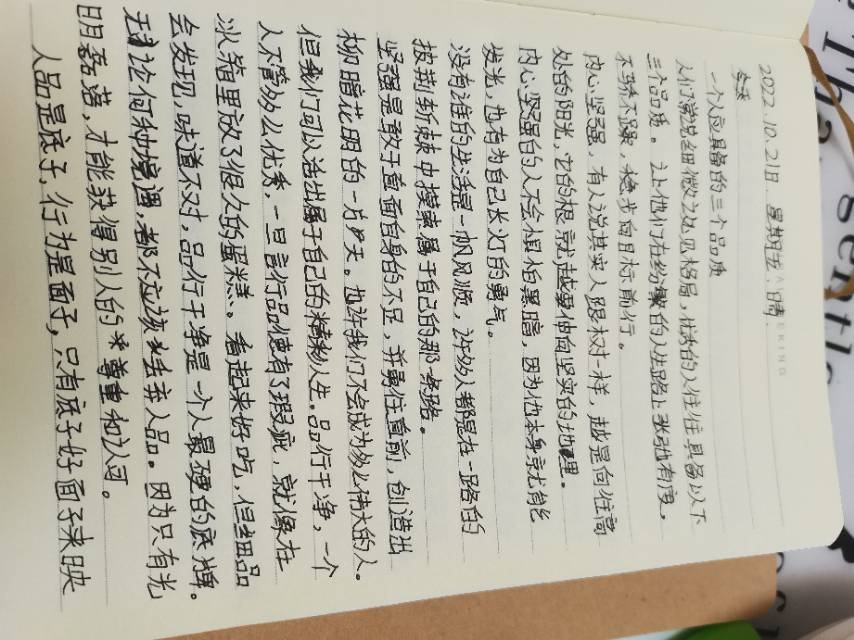 2022.10.21日. 星期五. 晴.
一个人应具备的三个品质
人们常说细微之处见格局，优秀的人往往具备以下
三个品质。让他们在纷繁的人生路上张弛有度，
不骄不躁，稳步向目标前行。
内心坚强，有人说其实人跟树一样，越是向往高
处的阳光，它的根就越要伸向坚实的地理。
内心坚强的人不会惧怕黑暗，因为他本身就能
发光，也有为自己长灯的勇气。
没有谁的生活是一帆风顺，许多人都是在一路的
披荆斩棘中摸索属于自己的那一条路。
坚强是敢于直面自身的不足，并勇往直前，创造出
柳暗花明的一片天。也许我们不会成为多么伟大的人。
但我们可以活出属于自己的精彩人生。品行干净，一个
人不管多么优秀，一旦言行品德有了瑕疵，就像在
冰箱里放了很久的蛋糕。看起来好吃，但细品
会发现，味道不对，品行干净是一个人最硬的底牌。
无论何种境遇，都不应该丢弃人品。因为只有光
明磊落，才能获得别人的尊重和认可。
人品是底子，行为是面子，只有底子好面子来映
The
gentle